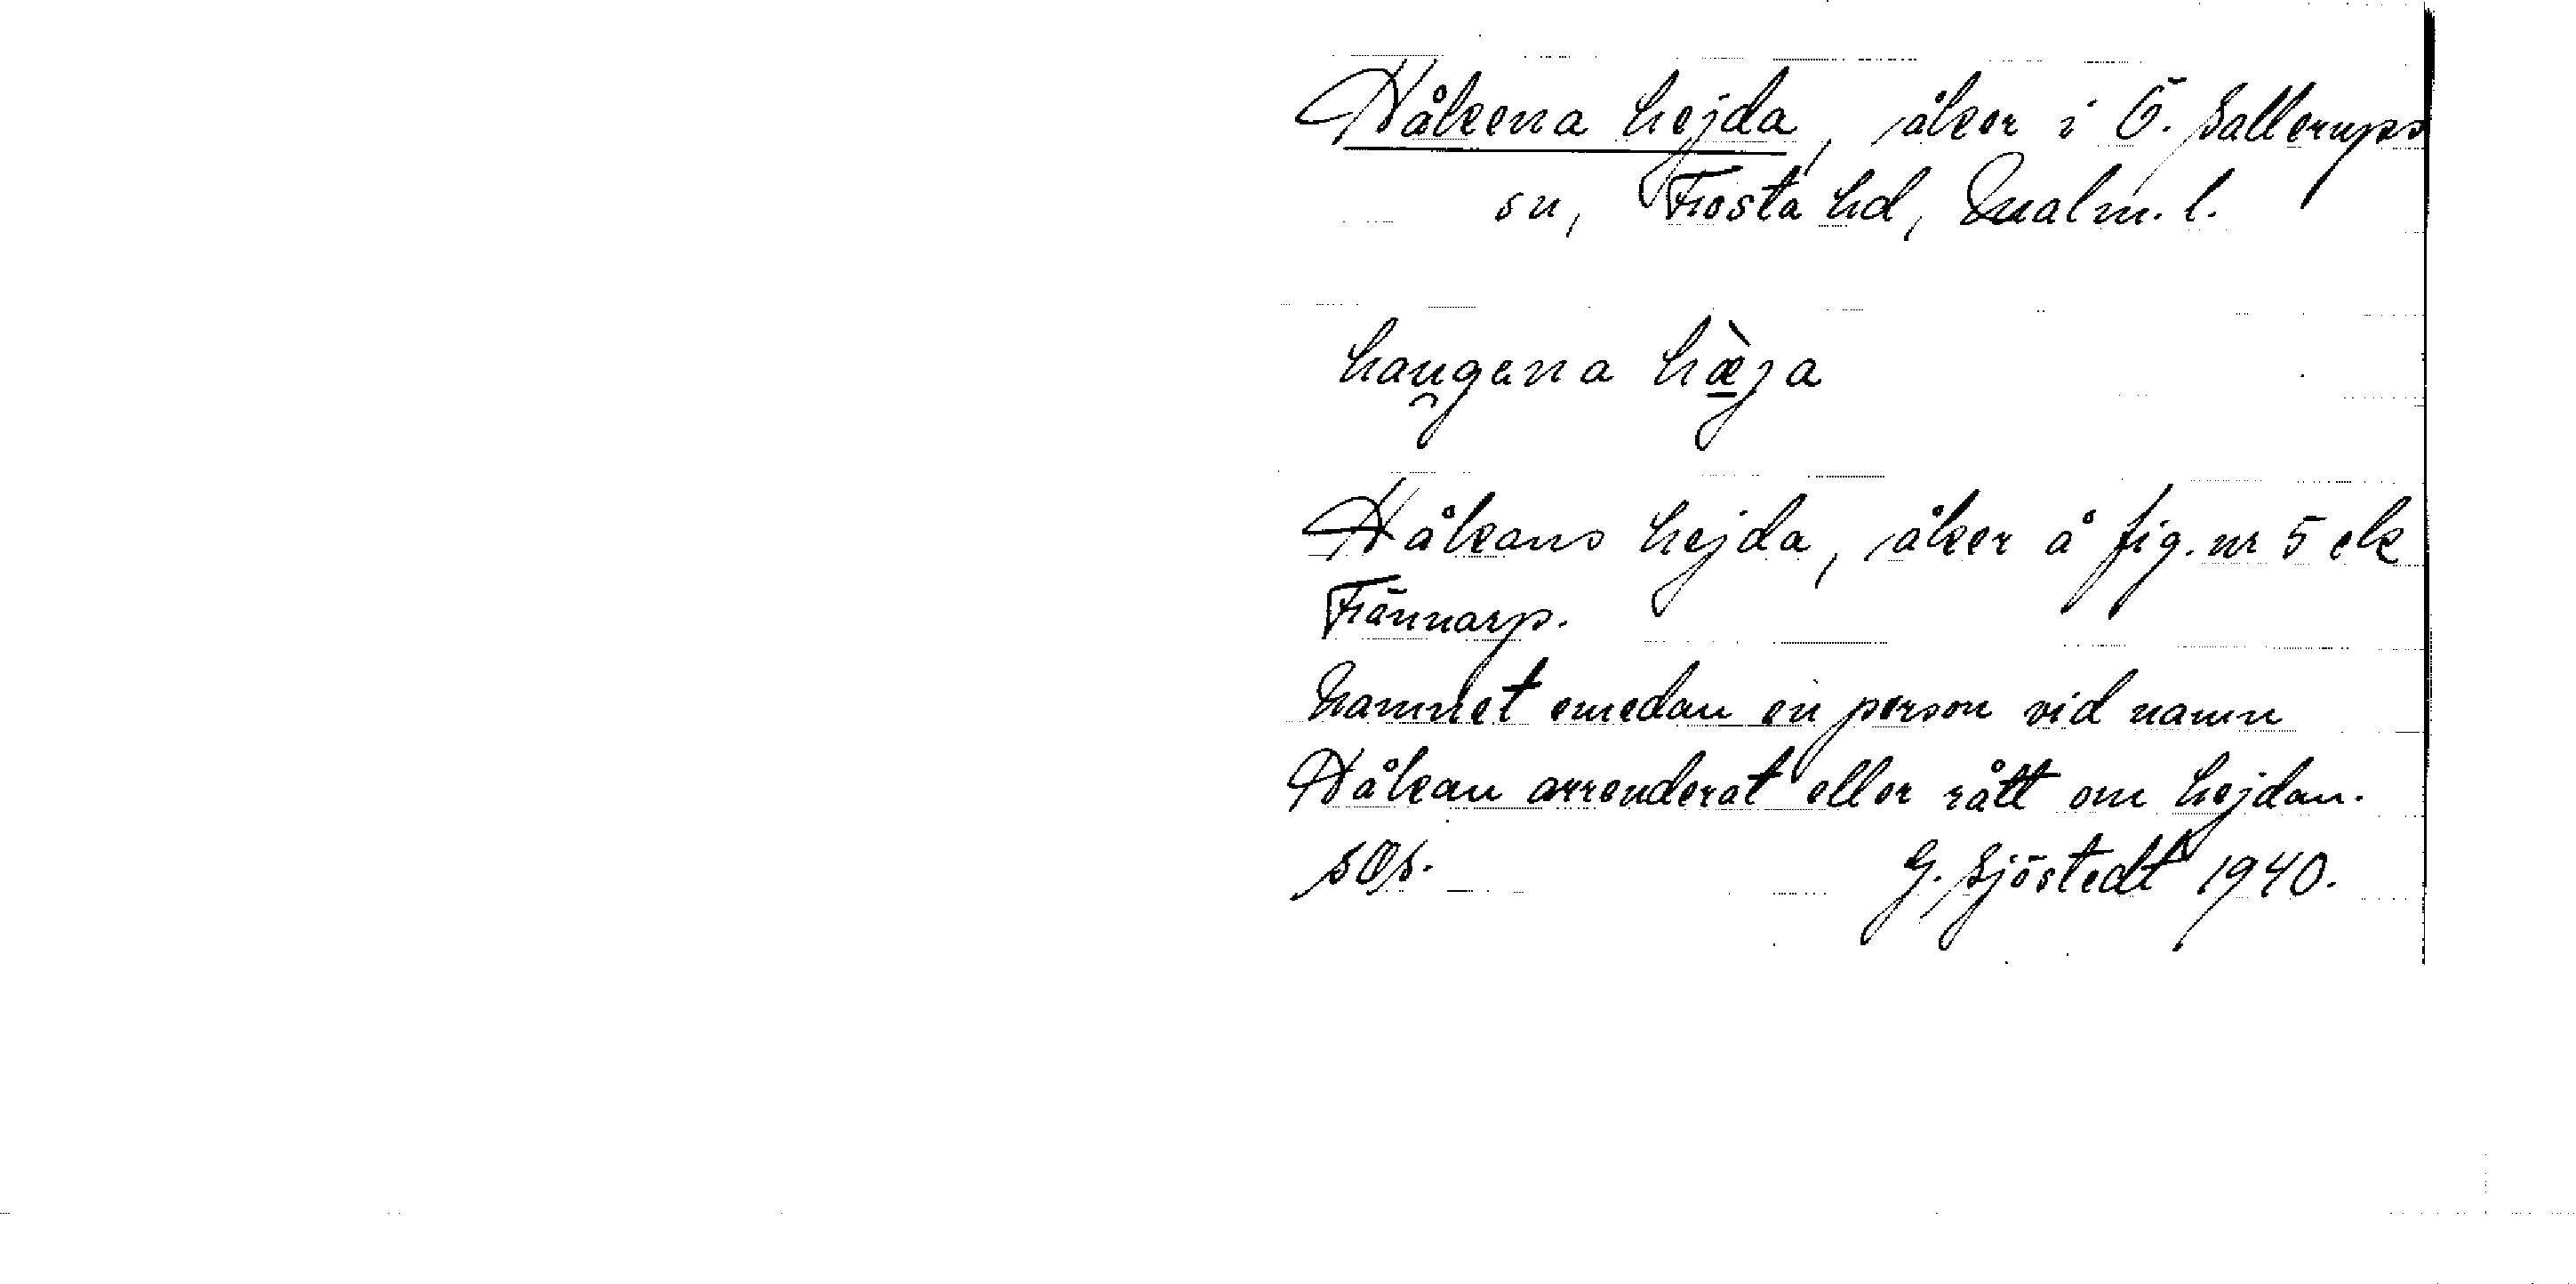 Håkena hejda, åker i Ö. Sallerups
sn, Frosta hd, Malm. l.
hau̯gena hæ̀ja
Håkans hejda, åker å fig. nr 5 ek
Frännarp.
Namnet emedan en person vid namn
Håkan arrenderat eller rått om hejdan.
SOS. G. Sjöstedt 1940.